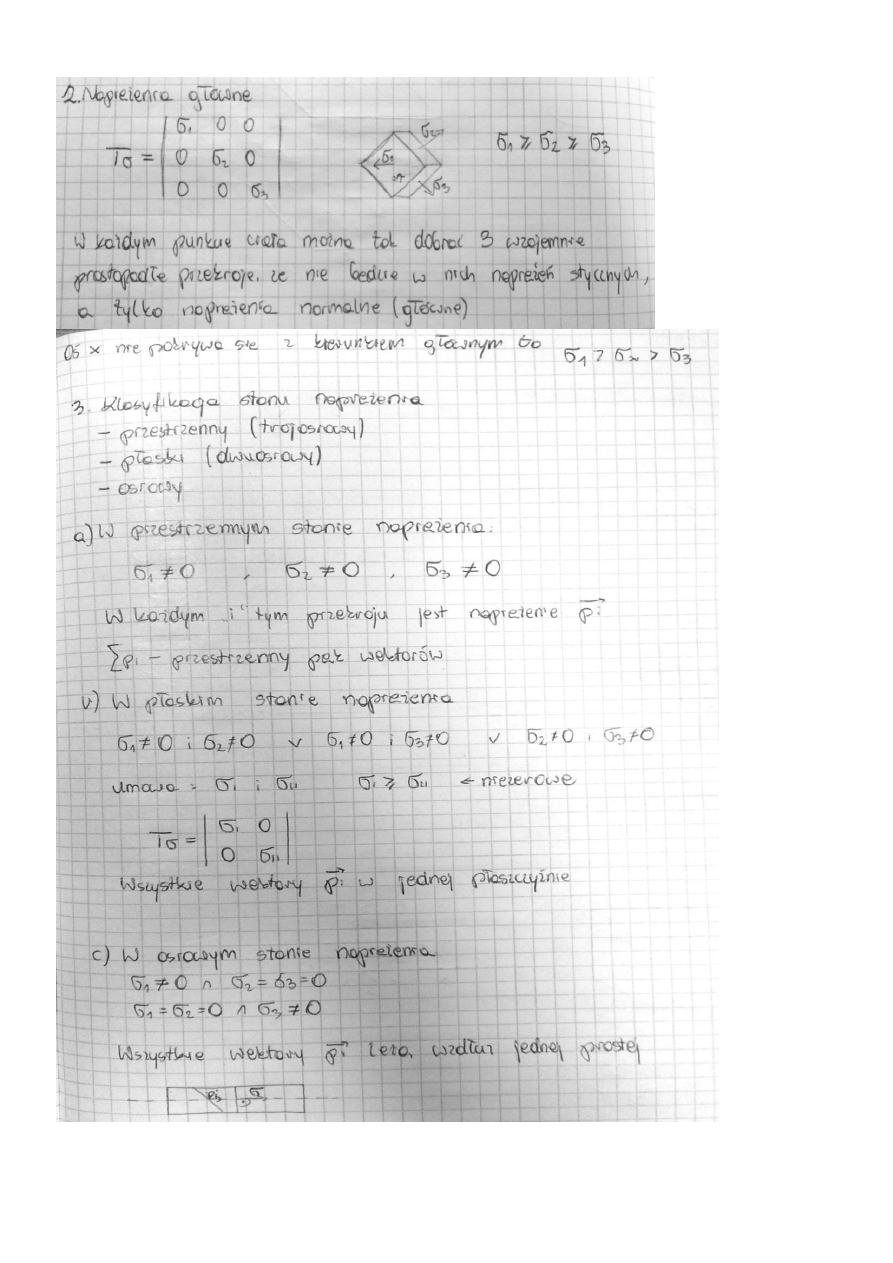 2. Naprężenia główne
Tσ = | σ1 0 0 |
| 0 σ2 0 |
| 0 0 σ3 |
σ1 ≥ σ2 ≥ σ3
W każdym punkcie ciała można tak dobrać 3 wzajemnie
prostopadłe przekroje, że nie będzie w nich naprężeń stycznych,
a tylko naprężenia normalne (główne)
Oś x nie pokrywa się z kierunkiem głównym to σ1 > σx > σ3
3. Klasyfikacja stanu naprężenia
- przestrzenny (trójosiowy)
- płaski (dwuosiowy)
- osiowy
a) W przestrzennym stanie naprężenia:
σ1 ≠ 0 , σ2 ≠ 0 , σ3 ≠ 0
W każdym i" tym przekroju jest naprężenie p⃗i
∑pi - przestrzenny pęk wektorów
b) W płaskim stanie naprężenia
σ1 ≠ 0 i σ2 ≠ 0 ∨ σ1 ≠ 0 i σ3 ≠ 0 ∨ σ2 ≠ 0 i σ3 ≠ 0
umowa = σI i σII σI ≥ σII ← niezerowe
Tσ = | σI 0 |
| 0 σII |
Wszystkie wektory p⃗i w jednej płaszczyźnie
c) W osiowym stanie naprężenia
σ1 ≠ 0 ∧ σ2 = σ3 = 0
σ1 = σ2 = 0 ∧ σ3 ≠ 0
Wszystkie wektory p⃗i leżą wzdłuż jednej prostej